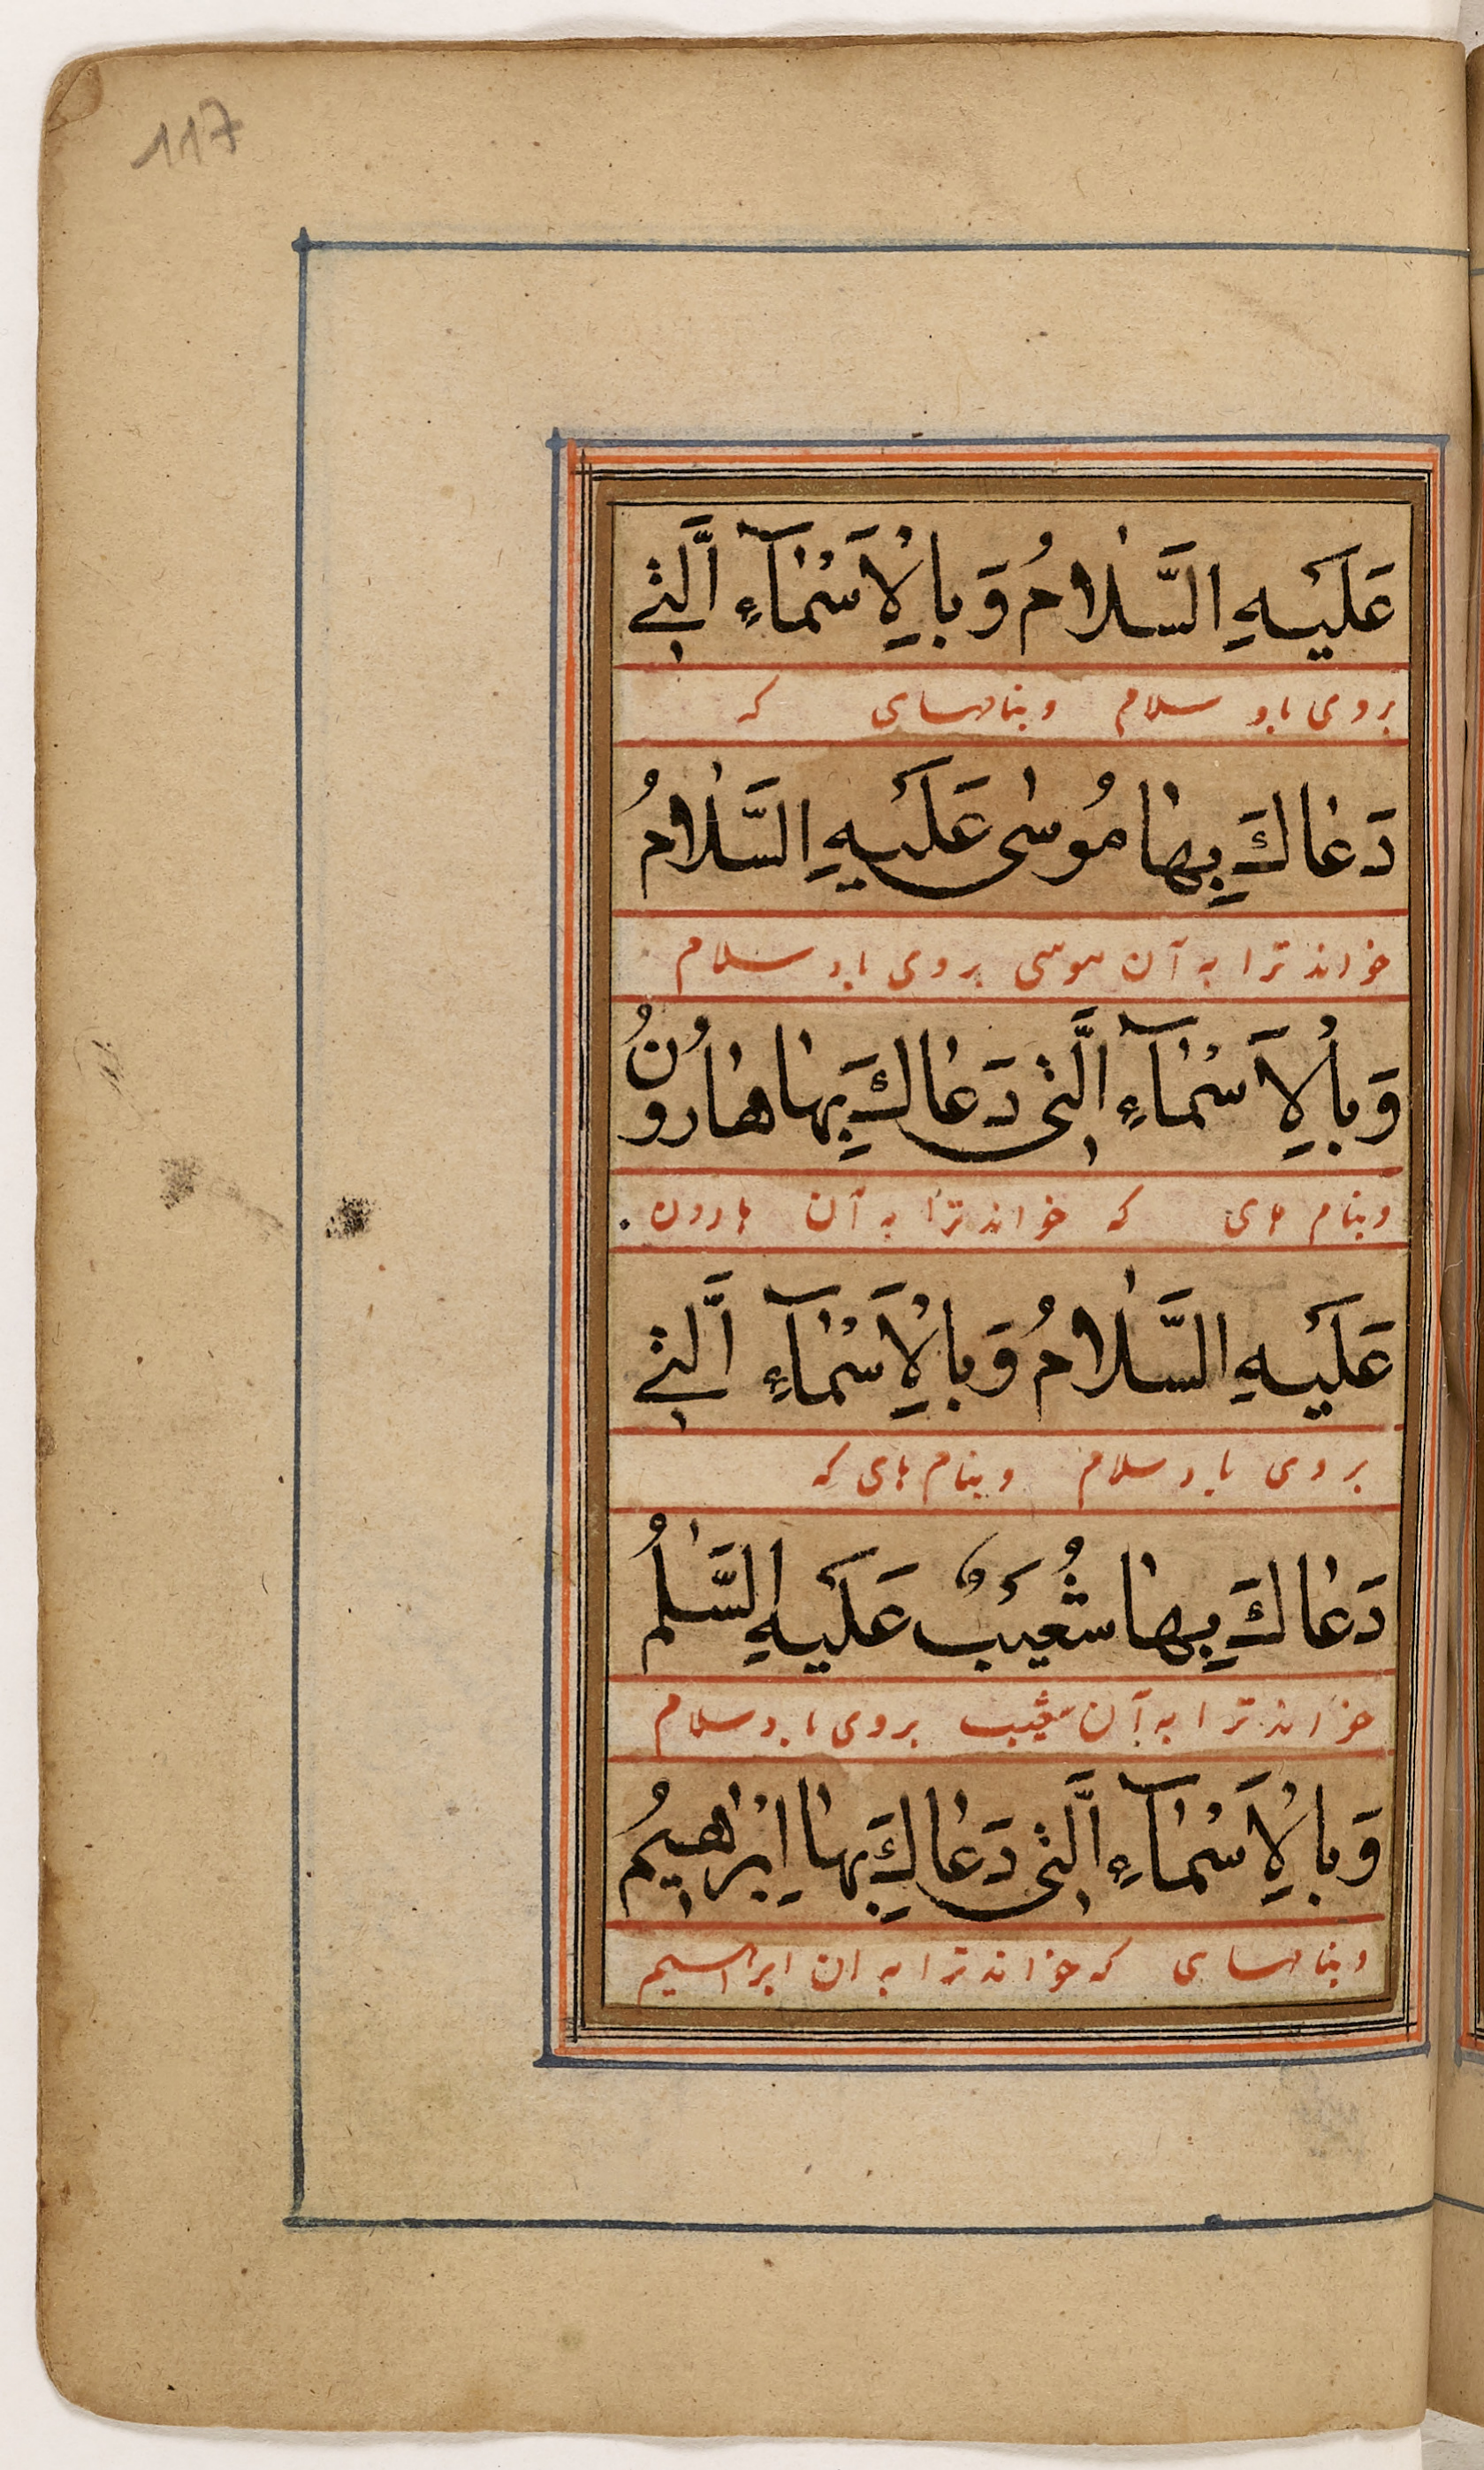 117
عَلَيْهِ السَّلٰامُ وَبِالْاَسْمٰآءِ الَّتٖے
بروی باد سلام وبنامهای که
دَعٰاكَ بِهٰا مُوسٰى عَلَيْهِ السَّلٰامُ
خواند ترا به آن موسی بروی باد سلام
وَبِالْاَسْمٰآءِ الَّتٖى دَعٰاكَ بِهٰا هٰارُونُ
وبنام های که خواند ترا به آن هارون
عَلَيْهِ السَّلٰامُ وَبِالْاَسْمٰآءِ الَّتٖے
بروی باد سلام وبنام های که
دَعٰاكَ بِهٰا شُعَيْبٌ عَلَيْهِ السَّلٰمُ
خواند ترا به آن شعیب بروی باد سلام
وَبِالْاَسْمٰآءِ الَّتٖى دَعٰاكَ بِهٰا اِبْرٰاهٖيمُ
وبنامهای که خواند ترا به ان ابراهیم